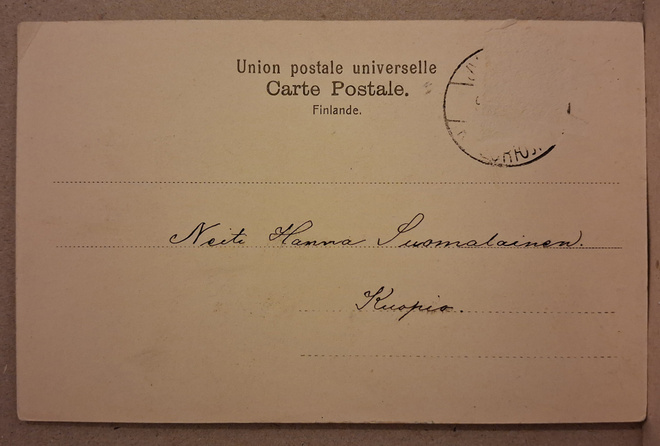 Union postale universelle
Carte Postale.
Finlande.
Neiti Hanna Suomalainen.
Kuopio.